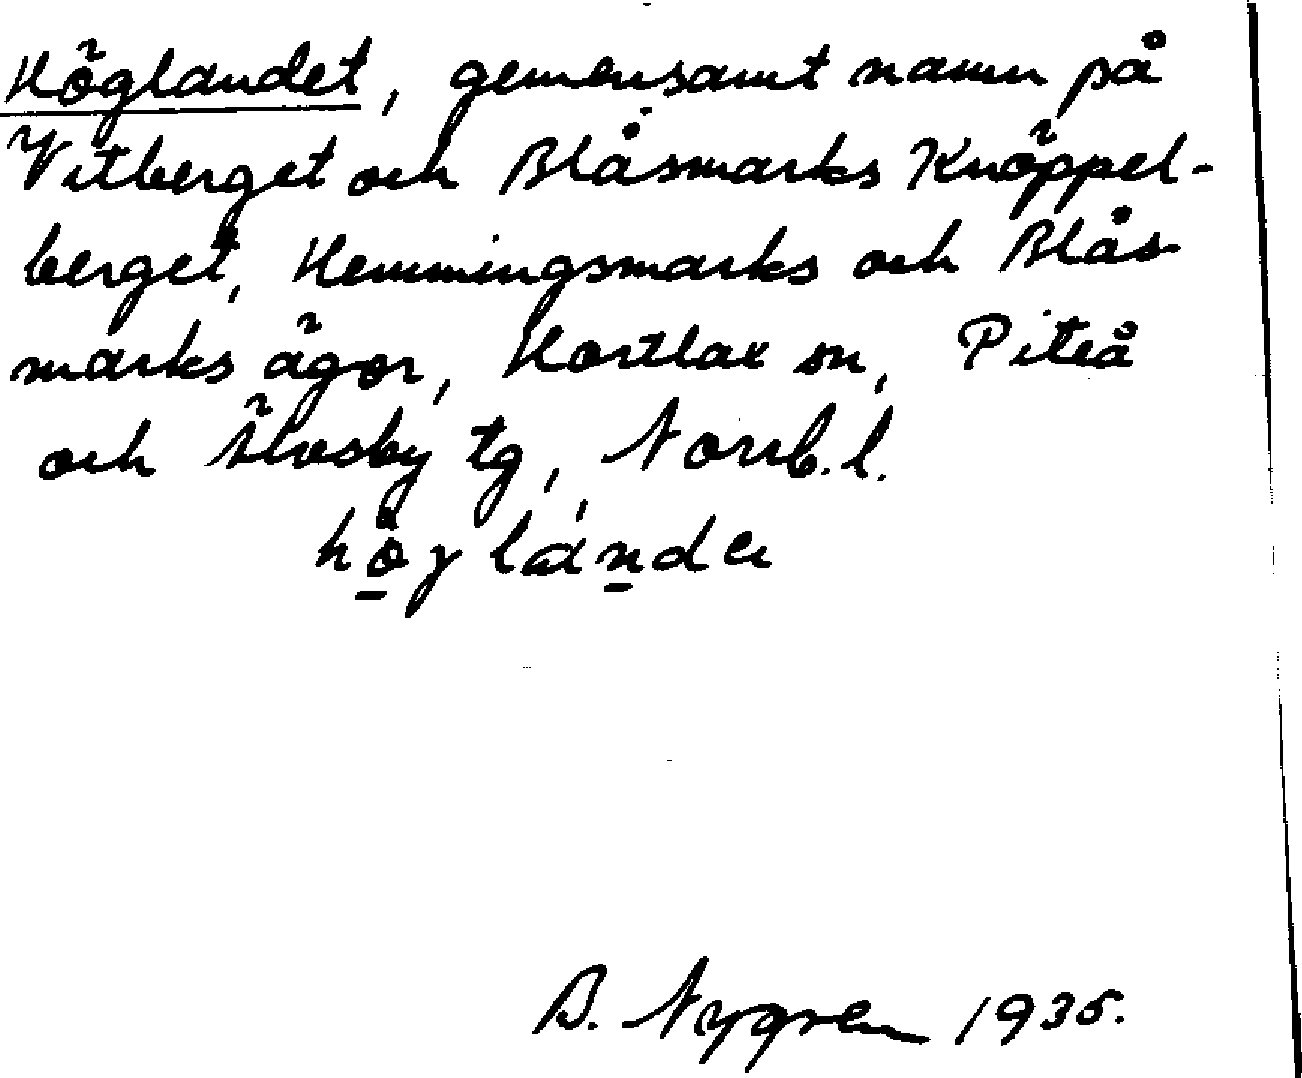 Höglandet, gemensamt namn på
Vitberget och Blåsmarks Knöppel-
berget, Hemmingsmarks och Blås-
marks ägor, Hortlax sn, Piteå
och Älvsby tg, Norrb.l.
B. Nygren 1935.